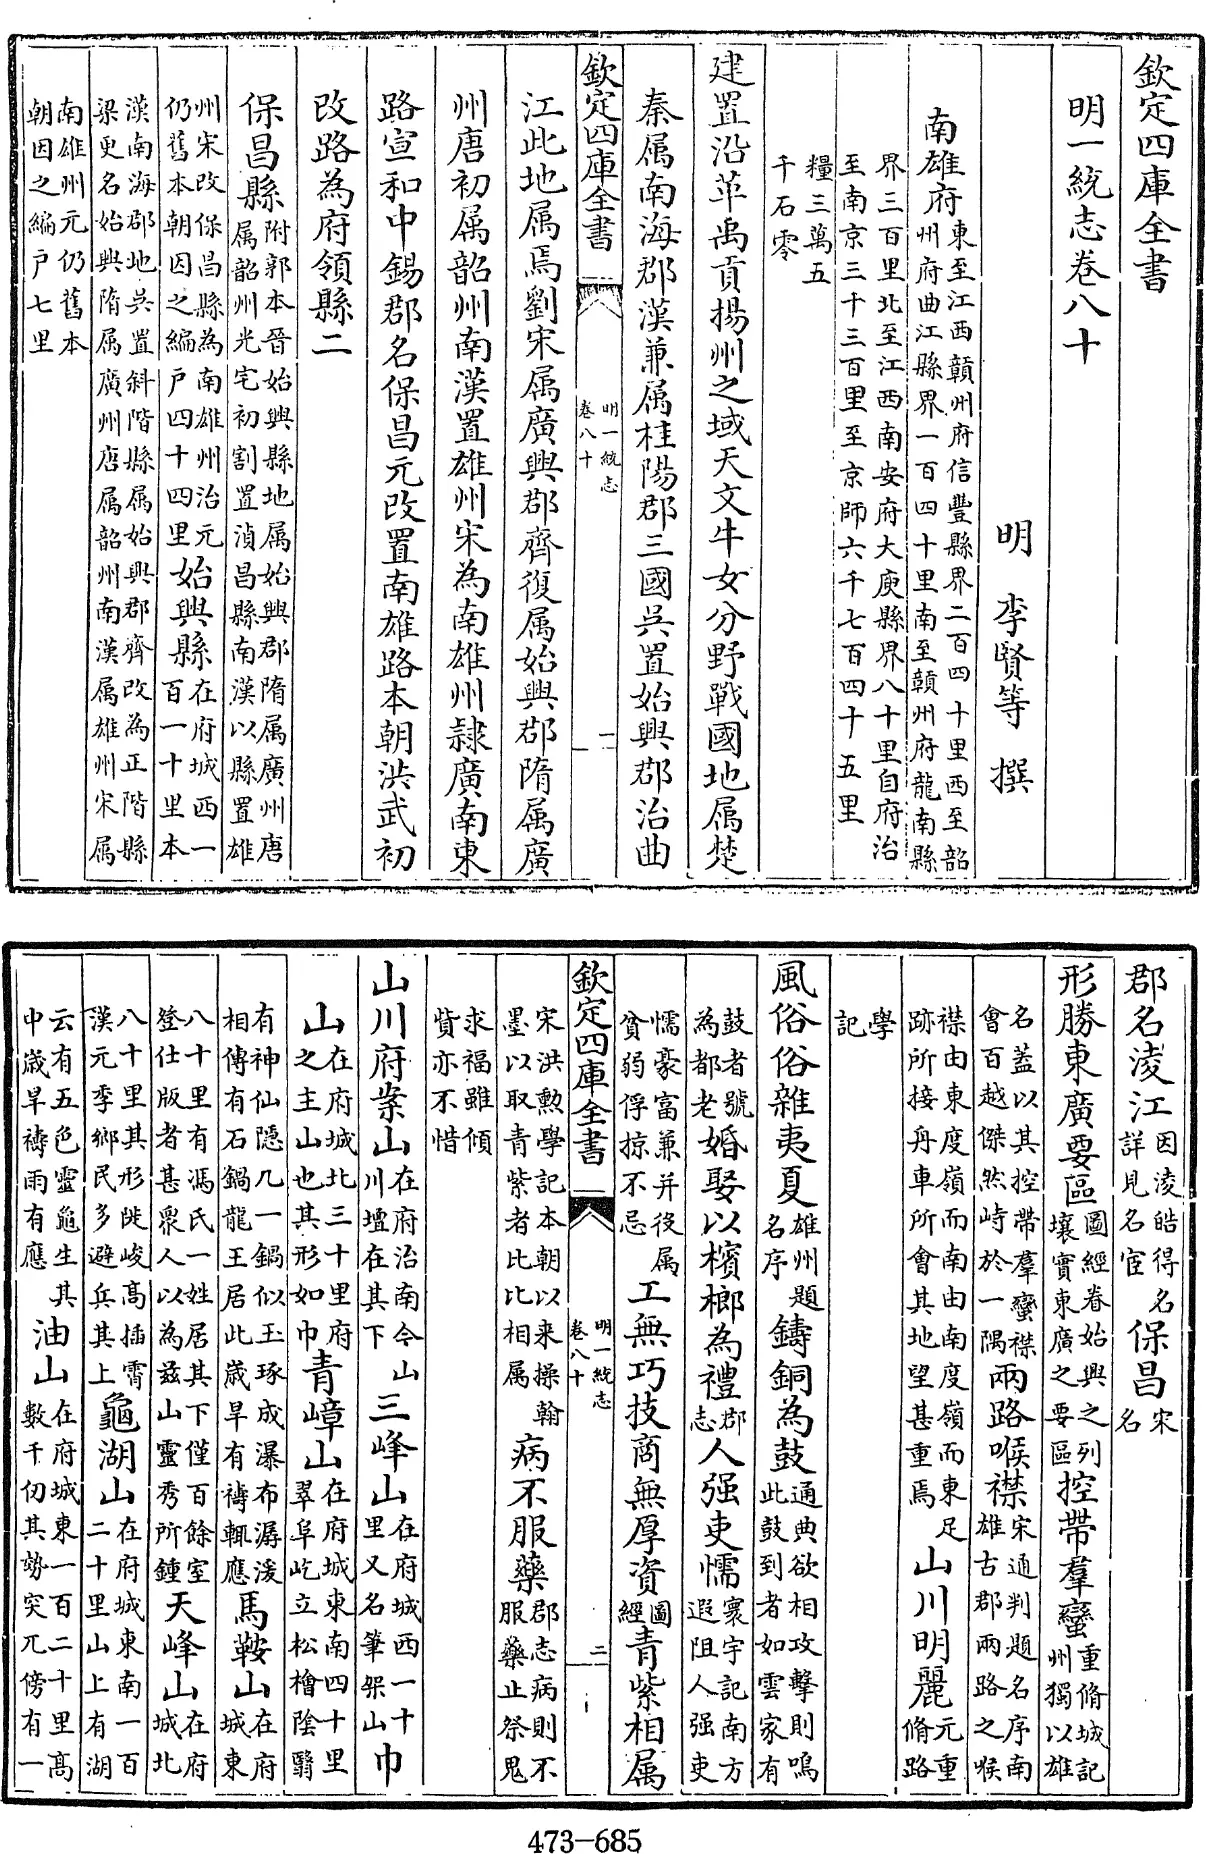 欽定四庫全書
明一統志卷八十
明 李賢等 撰
南雄府東至江西贛州府信豐縣界二百四十里西至韶州府曲江縣界一百四十里南至贛州府龍南縣
界三百里北至江西南安府大庾縣界八十里自府治至南京三千三百里至京師六千七百四十五里
糧三萬五千石零
建置沿革禹貢揚州之域天文牛女分野戰國地属楚
秦属南海郡漢兼属桂陽郡三國吳置始興郡治曲
欽定四庫全書 明一統志卷八十 一
江此地属焉劉宋属廣興郡齊復属始興郡隋属廣
州唐初属韶州南漢置雄州宋為南雄州隸廣南東
路宣和中錫郡名保昌元改置南雄路本朝洪武初
改路為府領縣二
保昌縣附郭本晉始興縣地属始興郡隋属廣州唐属韶州光宅初割置湞昌縣南漢以縣置雄
州宋改保昌縣為南雄州治元仍舊本朝因之編戶四十四里始興縣在府城西一百一十里本
漢南海郡地吳置斜階縣属始興郡齊改為正階縣梁更名始興隋属廣州唐属韶州南漢属雄州宋属
南雄州元仍舊本朝因之編戶七里
郡名淩江因淩皓得名詳見名宦保昌宋名
形勝東廣要區圖經眷始興之列壤實東廣之要區控帶羣蠻重脩城記州獨以雄
名蓋以其控帶羣蠻襟會百越傑然峙於一隅兩路喉襟宋通判題名序南雄古郡兩路之喉
襟由東度嶺而南由南度嶺而東足跡所接舟車所會其地望甚重焉山川明麗元重脩路
學記
風俗俗雜夷夏雄州題名序鑄銅為鼓通典欲相攻擊則鳴此鼓到者如雲家有
鼓者號為都老婚娶以檳榔為禮郡志人强吏懦寰宇記南方遐阻人强吏
懦豪富兼并役属貧弱俘掠不忌工無巧技商無厚資圖經青紫相属
欽定四庫全書 明一統志卷八十 二
宋洪勲學記本朝以来操翰墨以取青紫者比比相属病不服藥郡志病則不服藥止祭鬼
求福雖傾貲亦不惜
山川府案山在府治南今山川壇在其下三峰山在府城西一十里又名筆架山巾
山在府城北三十里府之主山也其形如巾青嶂山在府城東南四十里翠阜屹立松檜陰翳
有神仙隱几一鍋似玉琢成瀑布潺湲相傳有石鍋龍王居此歲旱有禱輒應馬鞍山在府城東
八十里有馮氏一姓居其下僅百餘室登仕版者甚眾人以為兹山靈秀所鍾天峰山在府城北
八十里其形陡峻髙插霄漢元季鄉民多避兵其上龜湖山在府城東南一百二十里山上有湖
云有五色靈龜生其中歲旱禱雨有應油山在府城東一百二十里髙數千仞其勢突兀傍有一
473-685